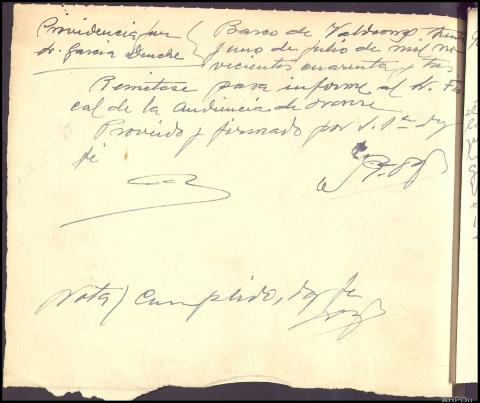 Providencia Juez
Sr. Garcia
Barco de Valdeorras, treinta y
uno de julio de mil no
vecientos cuarenta y tres
Remitase para informe al Sr. Fis
cal de la Audiencia de Orense
Proveido y firmado por S.Sª doy
fé
Nota) Cumplido, doy fe
AHPOu